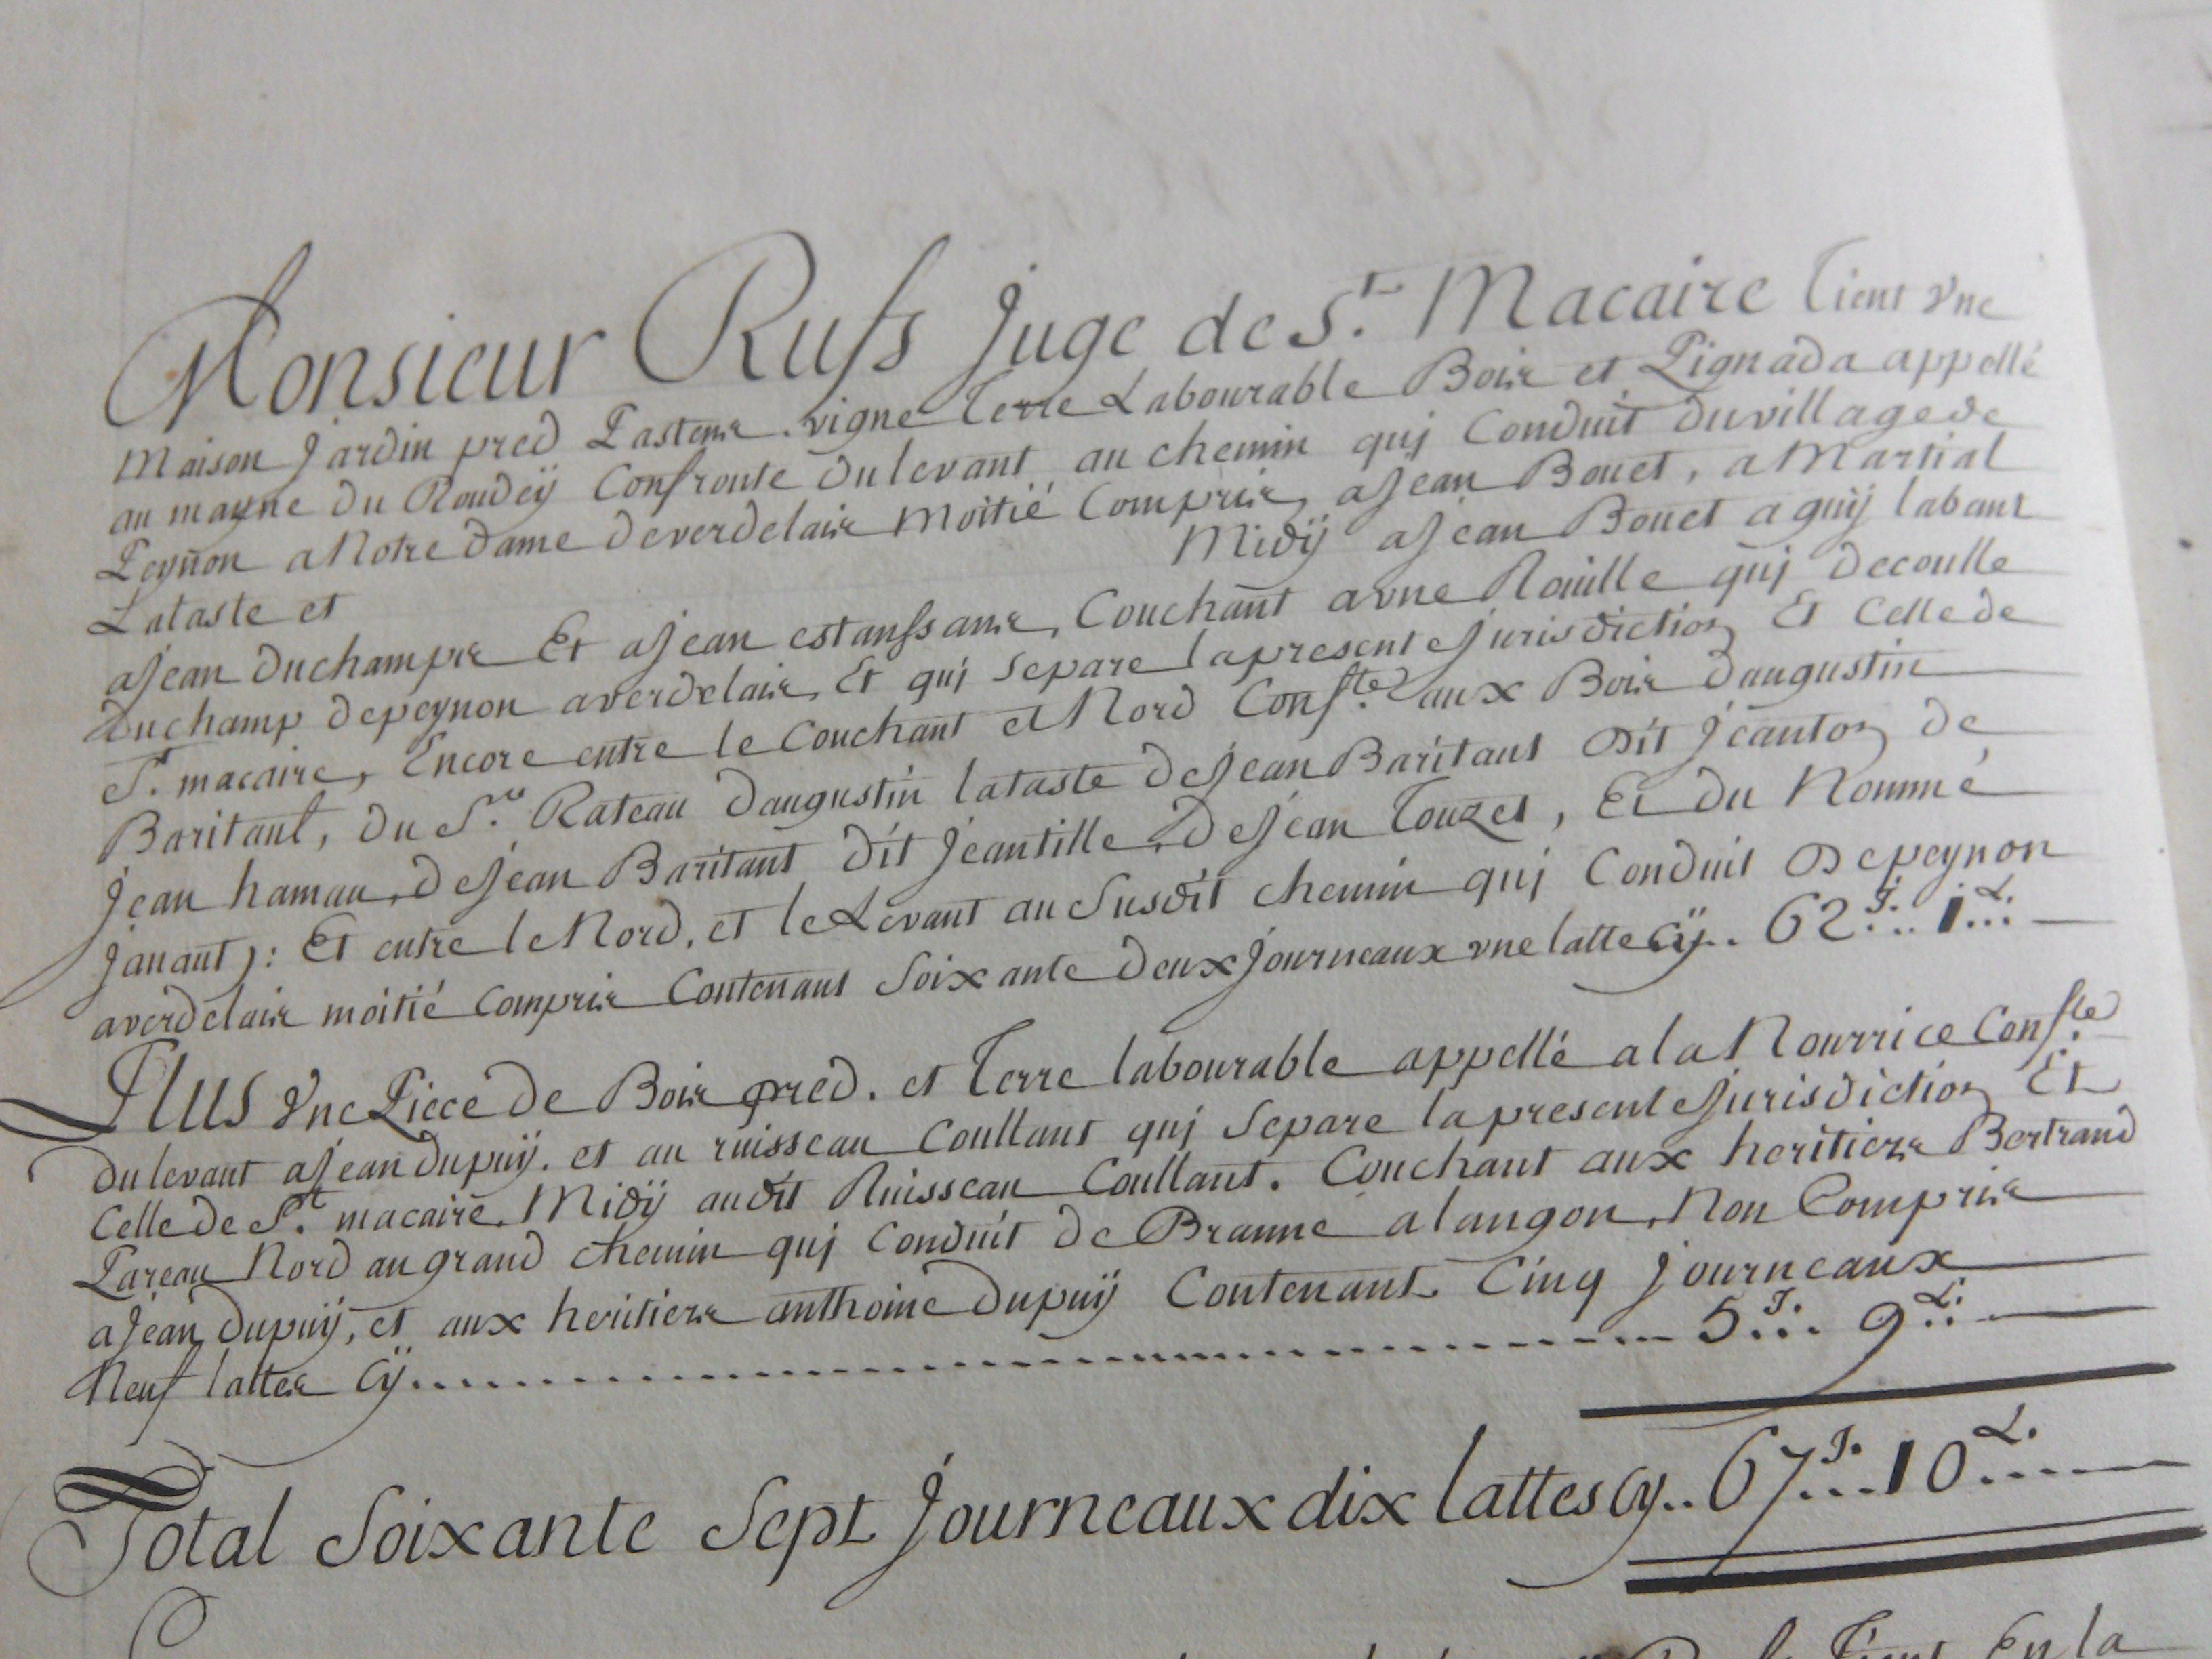 Monsieur Rufs Juge de St. Macaire Tient Vne
Maison Jardin pred Pastenx vigne Terre Labourable Bois et Pignada appellé
au mayne du Roudey Confronte du levant au chemin qui Conduit du village de
Peynon a Notre dame de verdelais moitié Compris, a Jean Bouet, a Martial
Lataste et Midÿ a Jean Bouet a guÿ labant
a Jean Duchamps Et a Jean estanssans, Couchant a vne Rouille qui decoulle
du champ de peynon a verdelais, Et qui Separe la presente Jurisdiction Et Celle de
St. macaire, Encore entre le Couchant et Nord Confte. aux Bois d'augustin
Baritaut, du Sr. Rateau d'augustin lataste de Jean Baritaut dit Jeanton, de
Jean hamau, de Jean Baritaut dit Jeantille, de Jean Touzet, Et du Nommé
Janant): Et entre le Nord, et le Levant au Susdit chemin qui Conduit de peynon
a verdelais moitié compris Contenant Soixante deux Journeaux vne latte Cÿ.. 62 J... 1 L...
Plus Vne Piece de Bois pred. et Terre labourable appellé a la Nourrice Confte.
du levant a Jean dupuÿ. et au ruisseau Coullant qui Separe la presente Jurisdiction Et
Celle de St. macaire. Midÿ audit Ruisseau Coullant. Couchant aux heritiers Bertrand
Pareau Nord au grand chemin qui Conduit de Branne a langon, Non Compris
a Jean dupuÿ, et aux heritiers anthoine Dupuÿ Contenant Cinq Journeaux
Neuf lattes Cÿ........ 5 J... 9 L...
Total Soixante Sept Journeaux dix lattes Cy.. 67 J... 10 L....
Tient En la